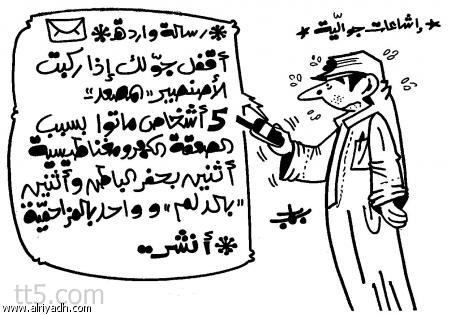 * إشاعات جوالية *
* رسالة واردة *
أقفل جوّلك إذا ركبت
الأصنصير "المصعد"
5 أشخاص ماتوا بسبب
الصعقة الكهرومغناطيسية
أثنين بحفر الباطن وأثنين
"بالدلم" وواحد بالمزاحميّة
* أنشر..
tt5.com
www.alriyadh.com